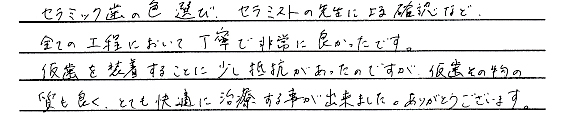 セラミック歯の色選び、セラミストの先生による確認など、
全ての工程において丁寧で非常に良かったです。
仮歯を装着することに少し抵抗があったのですが、仮歯その物の
質も良く、とても快適に治療する事が出来ました。ありがとうございます。